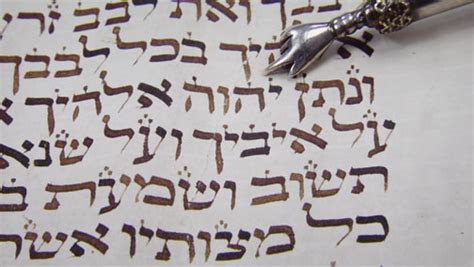 בכל לבבך
ונתן יהוה אלהיך
על איביך ועל שנא
תשוב ושמעת ב
כל מצותיו אשר